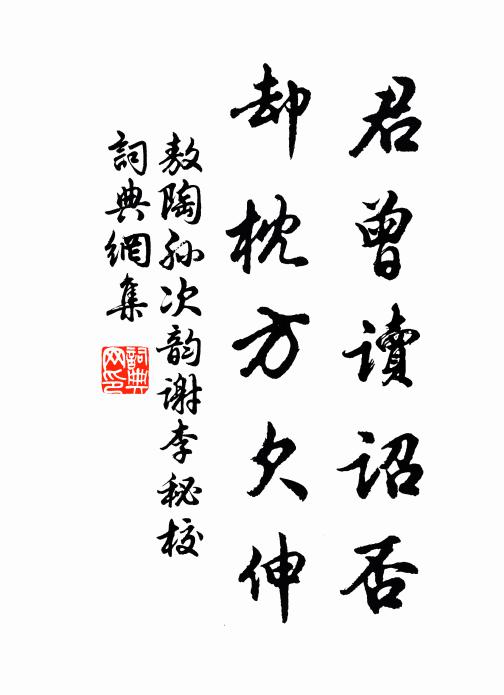 君曾讀詔否
却枕方欠伸
敖陶孙次韵谢李秘校
詞典網集
詞典
网印